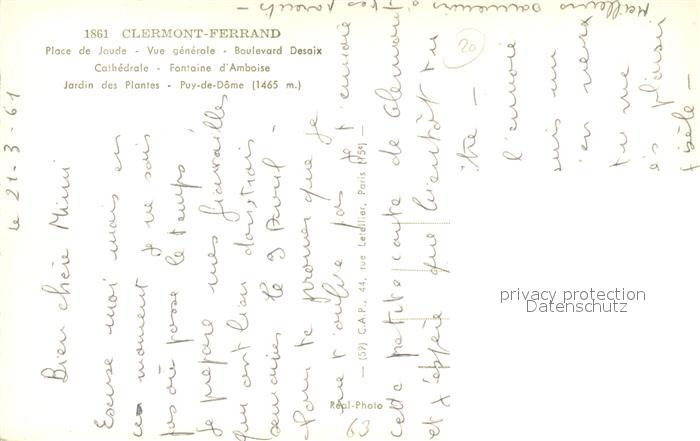 1861 CLERMONT-FERRAND
Place de Jaude - Vue générale - Boulevard Desaix
Cathédrale - Fontaine d'Amboise
Jardin des Plantes - Puy-de-Dôme (1465 m.)
le 21-3-61
Bien chère Mimi
Excuse moi mais en
ce moment je ne sais
pas où passe le temps,
je prépare mes fiançailles
qui ont lieu dans trois
semaines le 9 Avril -
Pour te prouver que je
ne t'oublie pas je t'envoie
cette petite carte de Clermont
et j'espère que bientôt tu
l'envoie
suis un
en veux
tu me
plaisir
Meilleurs souvenirs à tes parents -
- (59) C.A.P., 44, rue Letellier, Paris (15e) -
Real-Photo
63
20
privacy protection
Datenschutz